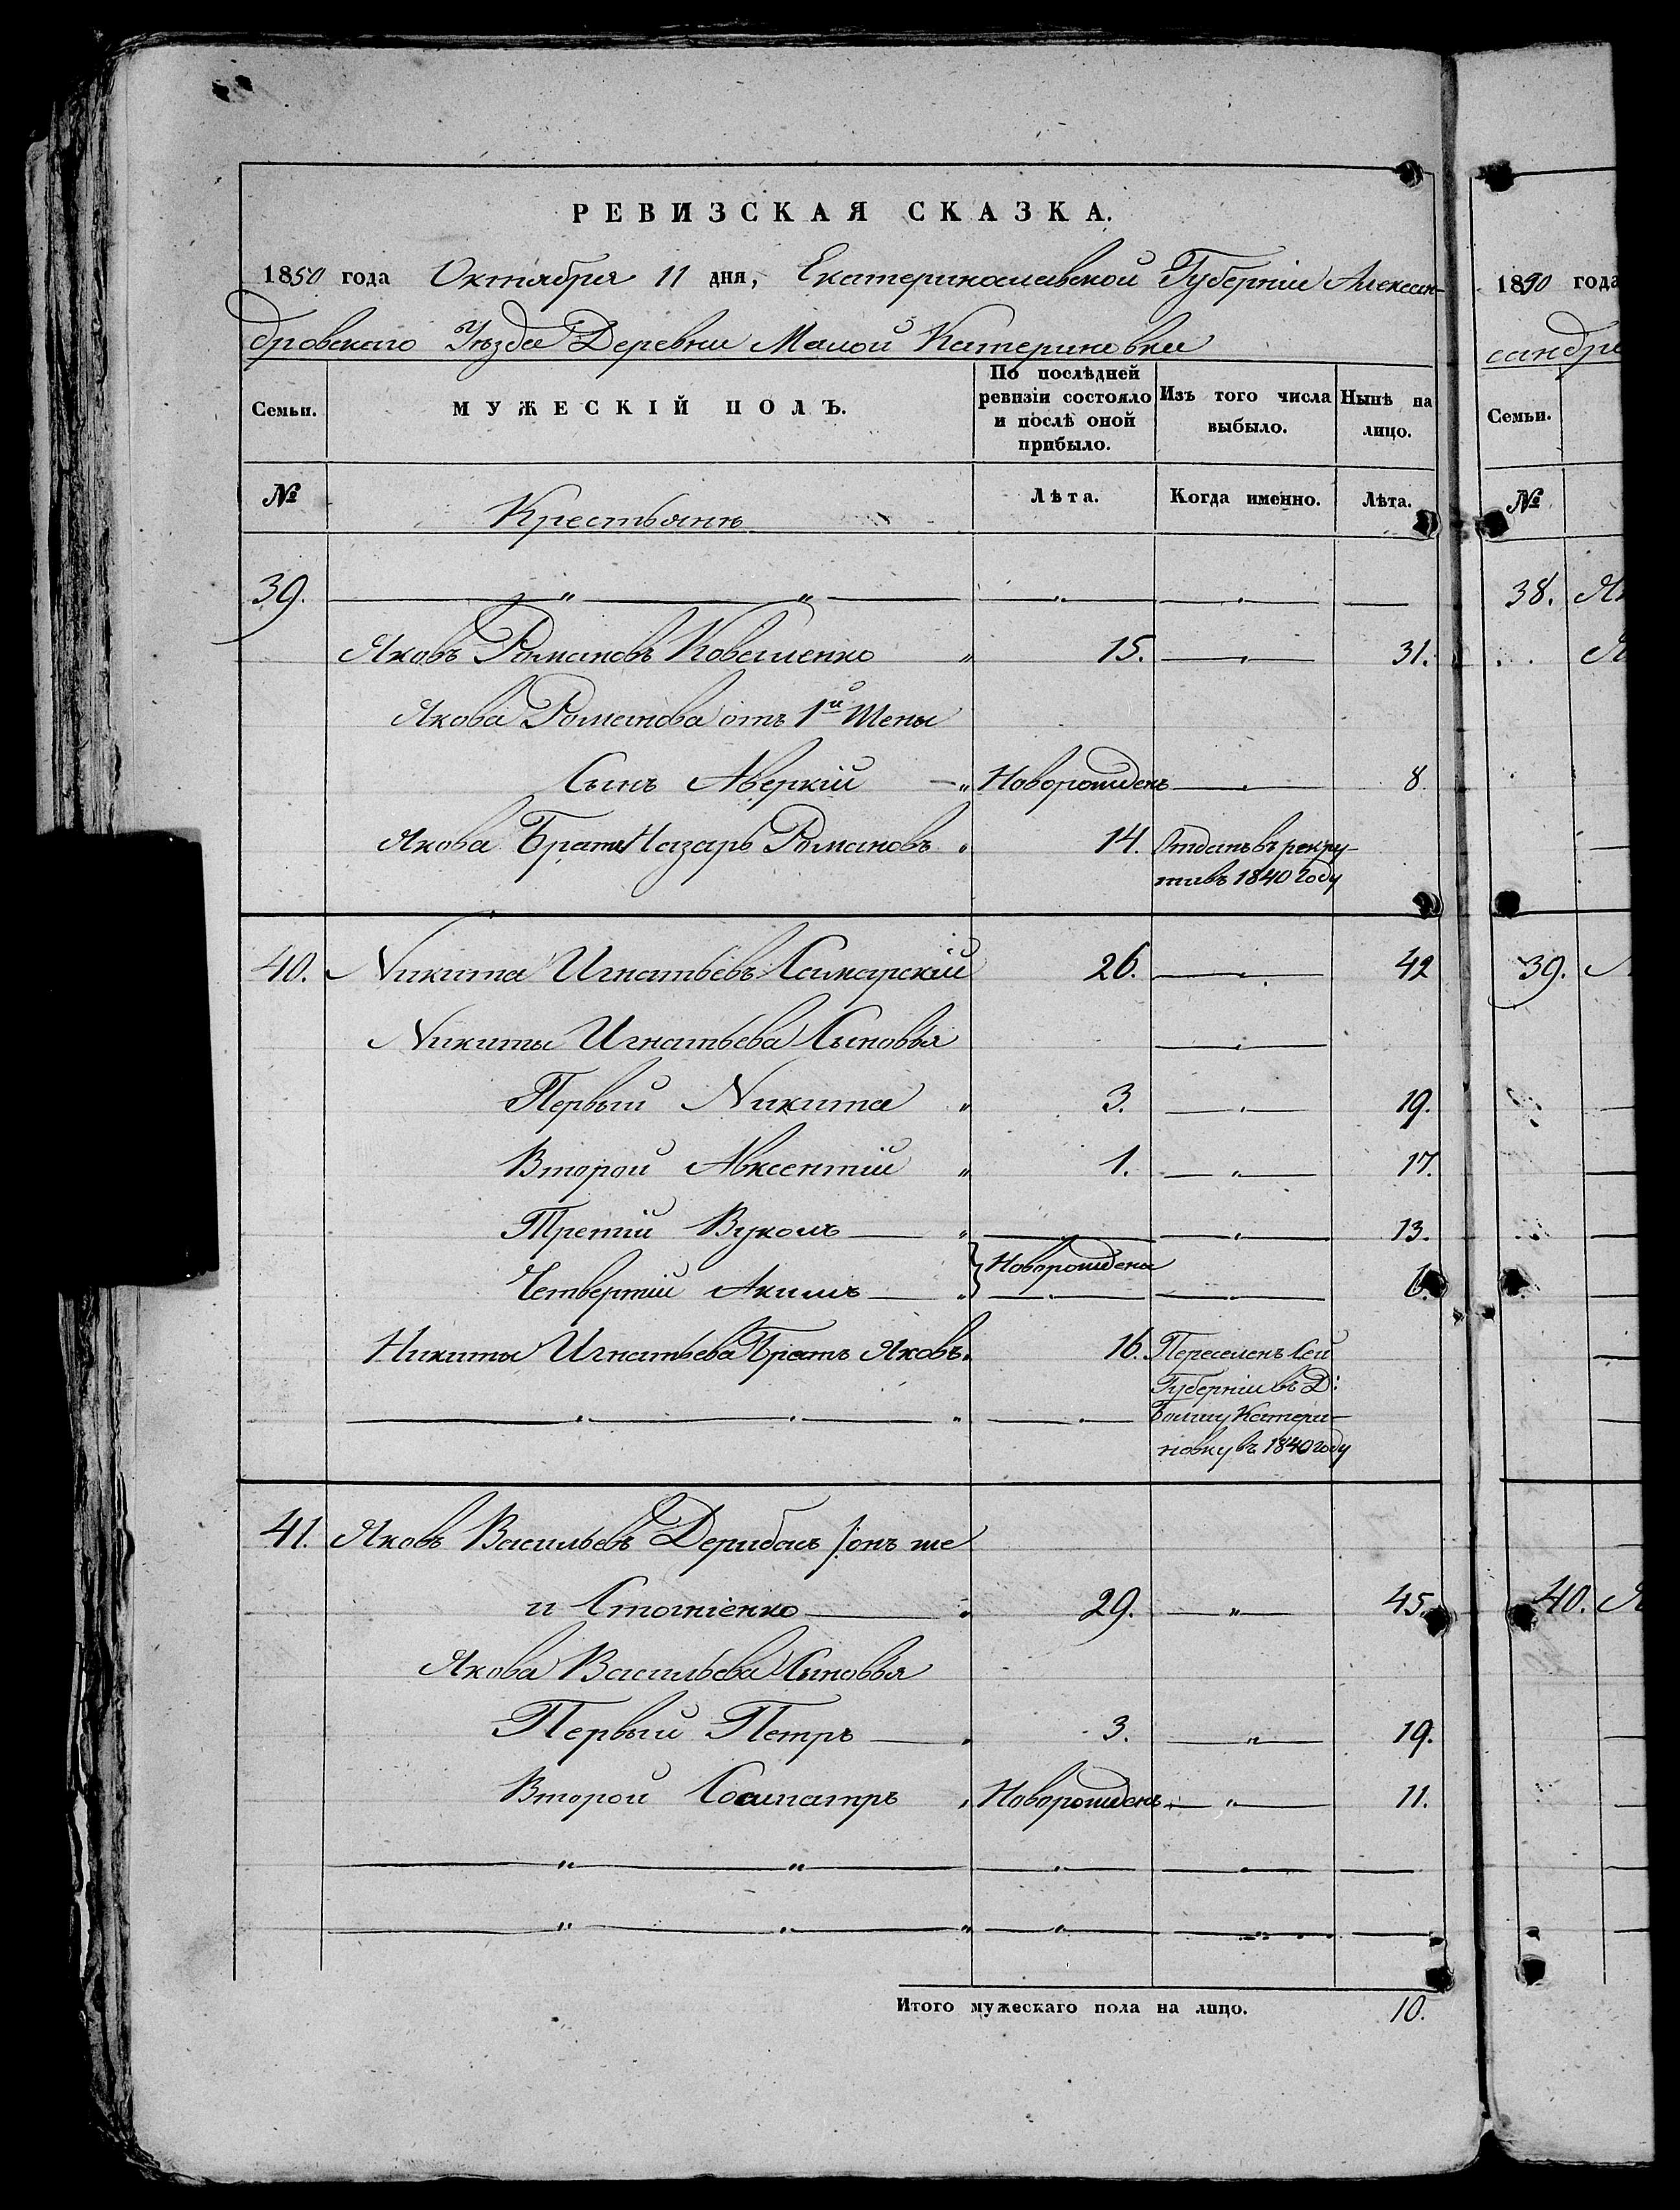 РЕВИЗСКАЯ СКАЗКА.
1850 года Октября 11 дня, Екатеринославской Губерніи Алексан-
дровскаго Уѣзда Деревни Малой Катериновки
Семьи. МУЖЕСКІЙ ПОЛЪ. По послѣдней ревизіи состояло и послѣ оной прибыло. Изъ того числа выбыло. Нынѣ на лицо.
№ Крестьянъ Лѣта. Когда именно. Лѣта.
39.
Яковъ Романовъ 15. 31.
Якова Романова отъ 1й Жены
Сынъ Аверкій Новорожденъ 8
Якова Братъ Назаръ Романовъ 14. Отданъ въ рекру-
ты въ 1840 году
40. Никита Игнатьевъ Самарскій 26. 42
Никиты Игнатьева Сыновья
Первый Никита 3. 19.
Второй Авксентій 1. 17.
Третій Вуколъ 13.
Новорождены
Четвертій Акимъ 6.
Никиты Игнатьева Братъ Яковъ 16. Переселенъ Сей
Губерніи въ Д:
Болшу Катери-
новку въ 1840 году
41. Яковъ Васильевъ Дерибасъ /: онъ же
и 29. 45.
Якова Васильева Сыновья
Первый Петръ 3. 19.
Второй Сосипатръ Новорожденъ 11.
Итого мужескаго пола на лицо. 10.
1850 года
сандро
Семьи.
№
38. Я
39.
40. Я